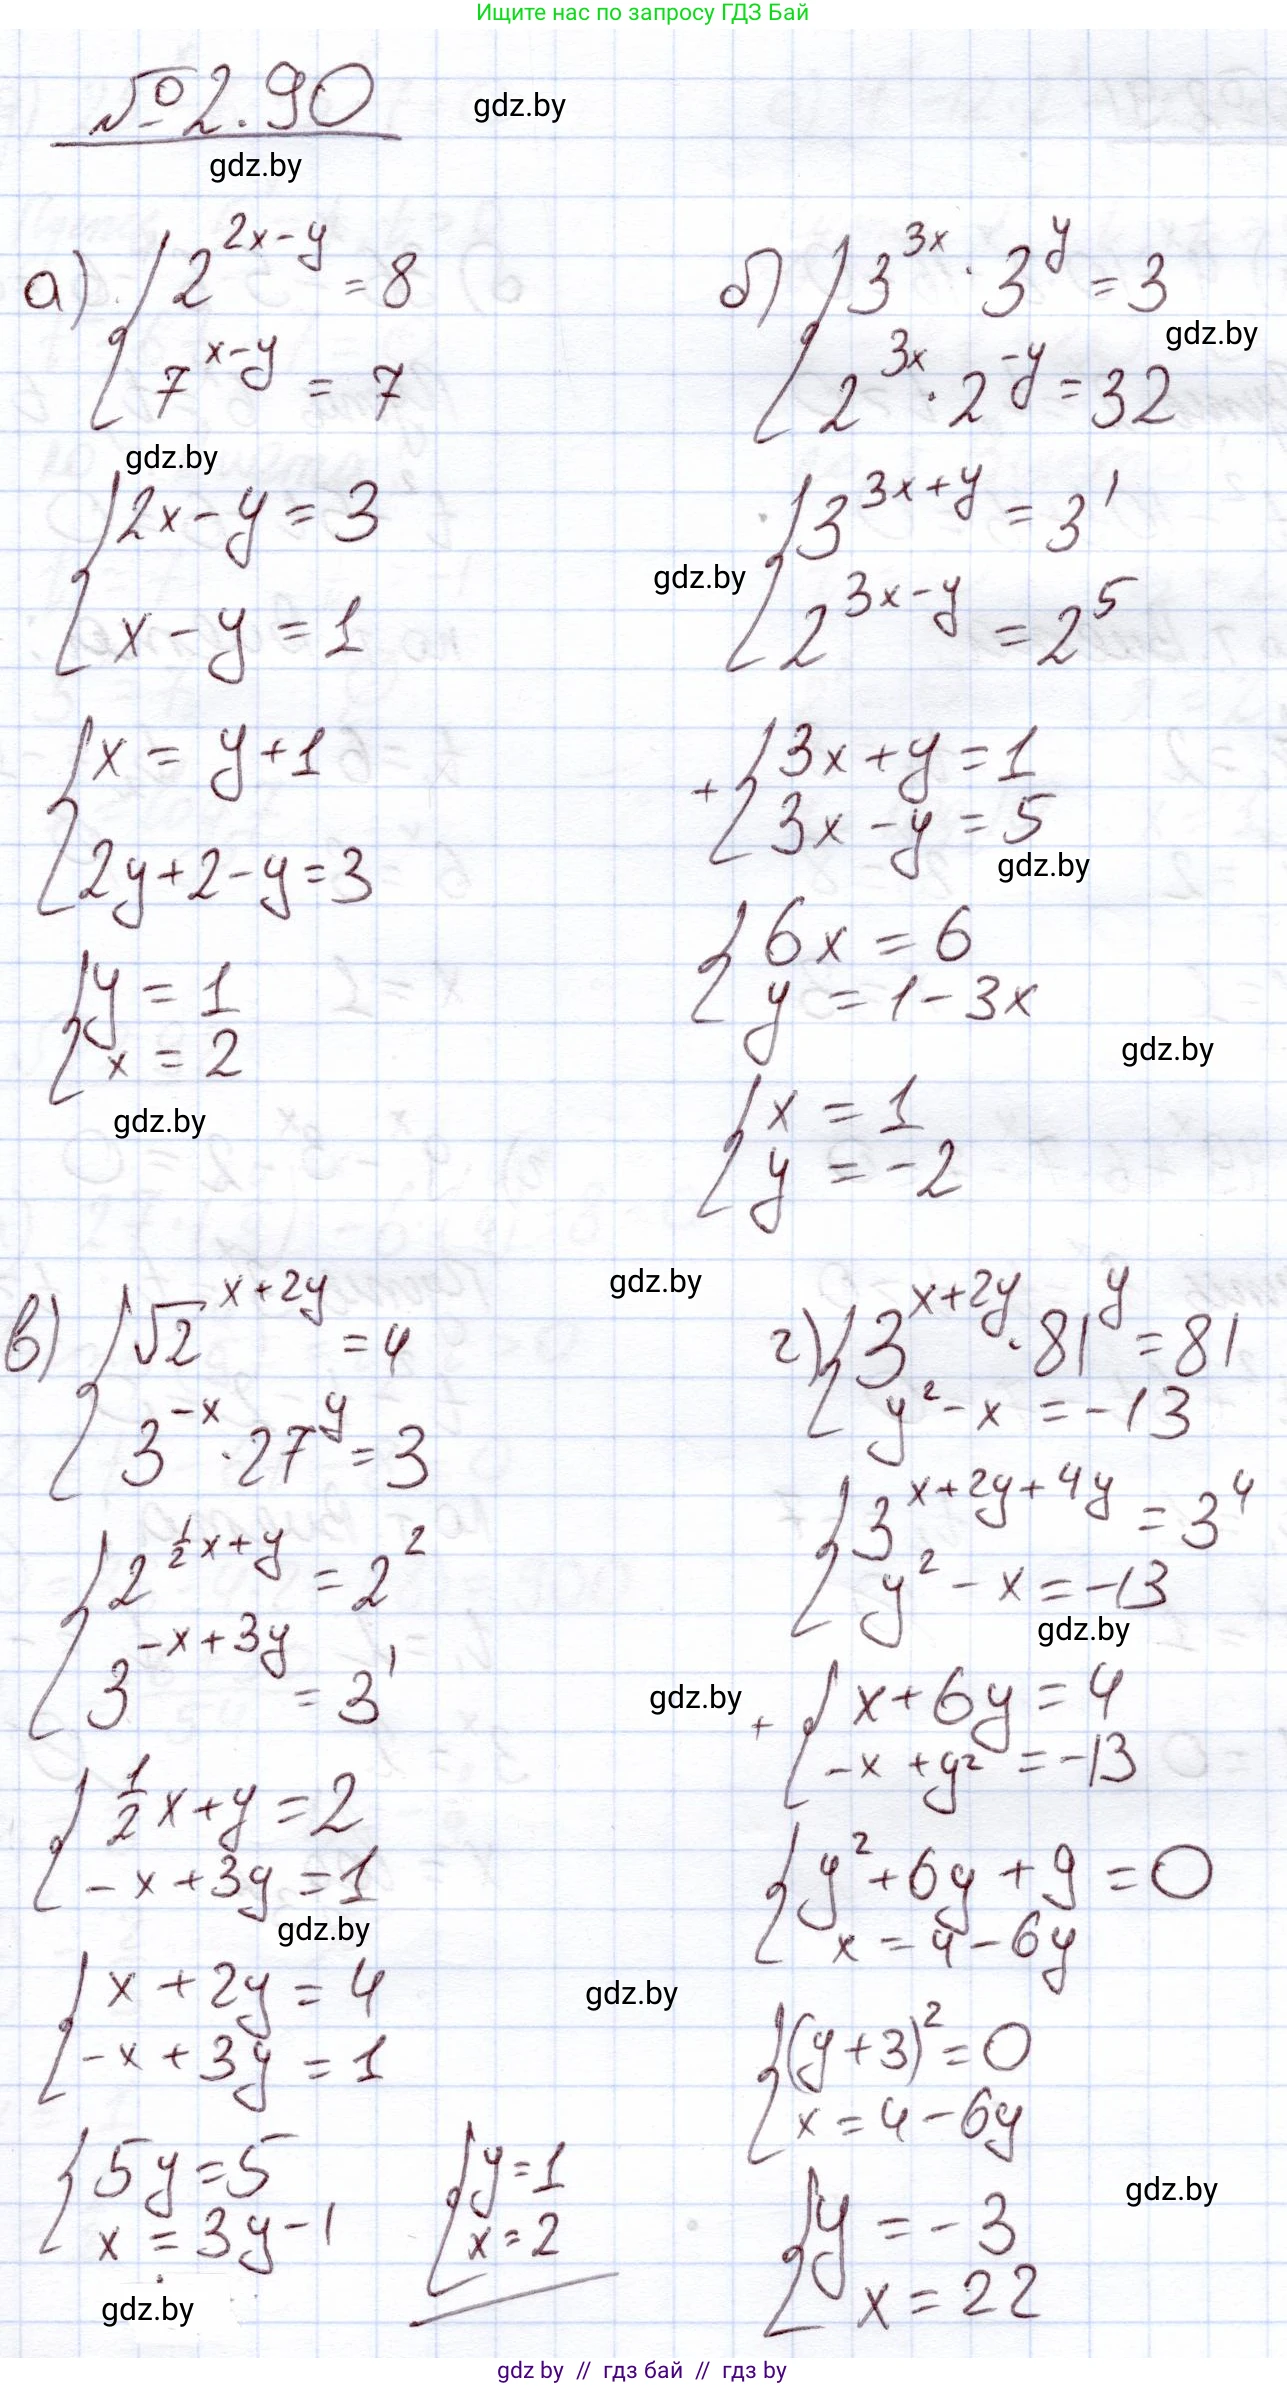 Ищите нас по запросу ГДЗ Бай
№2.90
gdz.by
gdz.by
а) { 2^{2x-y} = 8
7^{x-y} = 7
gdz.by
{ 2x - y = 3
x - y = 1
{ x = y + 1
2y + 2 - y = 3
{ y = 1
x = 2
gdz.by
б) { 3^{3x} · 3^{y} = 3
gdz.by
2^{3x} · 2^{-y} = 32
{ 3^{3x+y} = 3^{1}
gdz.by
2^{3x-y} = 2^{5}
+ { 3x + y = 1
3x - y = 5
gdz.by
{ 6x = 6
y = 1 - 3x
gdz.by
{ x = 1
y = -2
gdz.by
в) { √2^{x+2y} = 4
3^{-x} · 27^{y} = 3
{ 2^{\frac{1}{2}x+y} = 2^{2}
3^{-x+3y} = 3^{1}
{ \frac{1}{2}x + y = 2
-x + 3y = 1
gdz.by
{ x + 2y = 4
-x + 3y = 1
{ 5y = 5
x = 3y - 1
{ y = 1
x = 2
gdz.by
г) { 3^{x+2y} · 81^{y} = 81
y² - x = -13
{ 3^{x+2y+4y} = 3^{4}
y² - x = -13
gdz.by
gdz.by
+ { x + 6y = 4
-x + y² = -13
{ y² + 6y + 9 = 0
x = 4 - 6y
gdz.by
{ (y + 3)² = 0
x = 4 - 6y
gdz.by
{ y = -3
x = 22
gdz by // гдз бай // гдз by